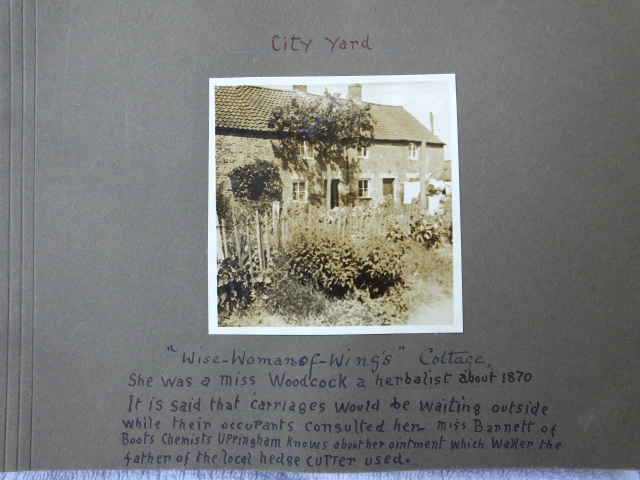 City Yard
"Wise-Woman-of-Wing's" Cottage.
She was a Miss Woodcock a herbalist about 1870
It is said that carriages would be waiting outside
while their occupants consulted her. Miss Barnett of
Boots Chemists Uppingham knows about her ointment which Walker the
father of the local hedge cutter used.